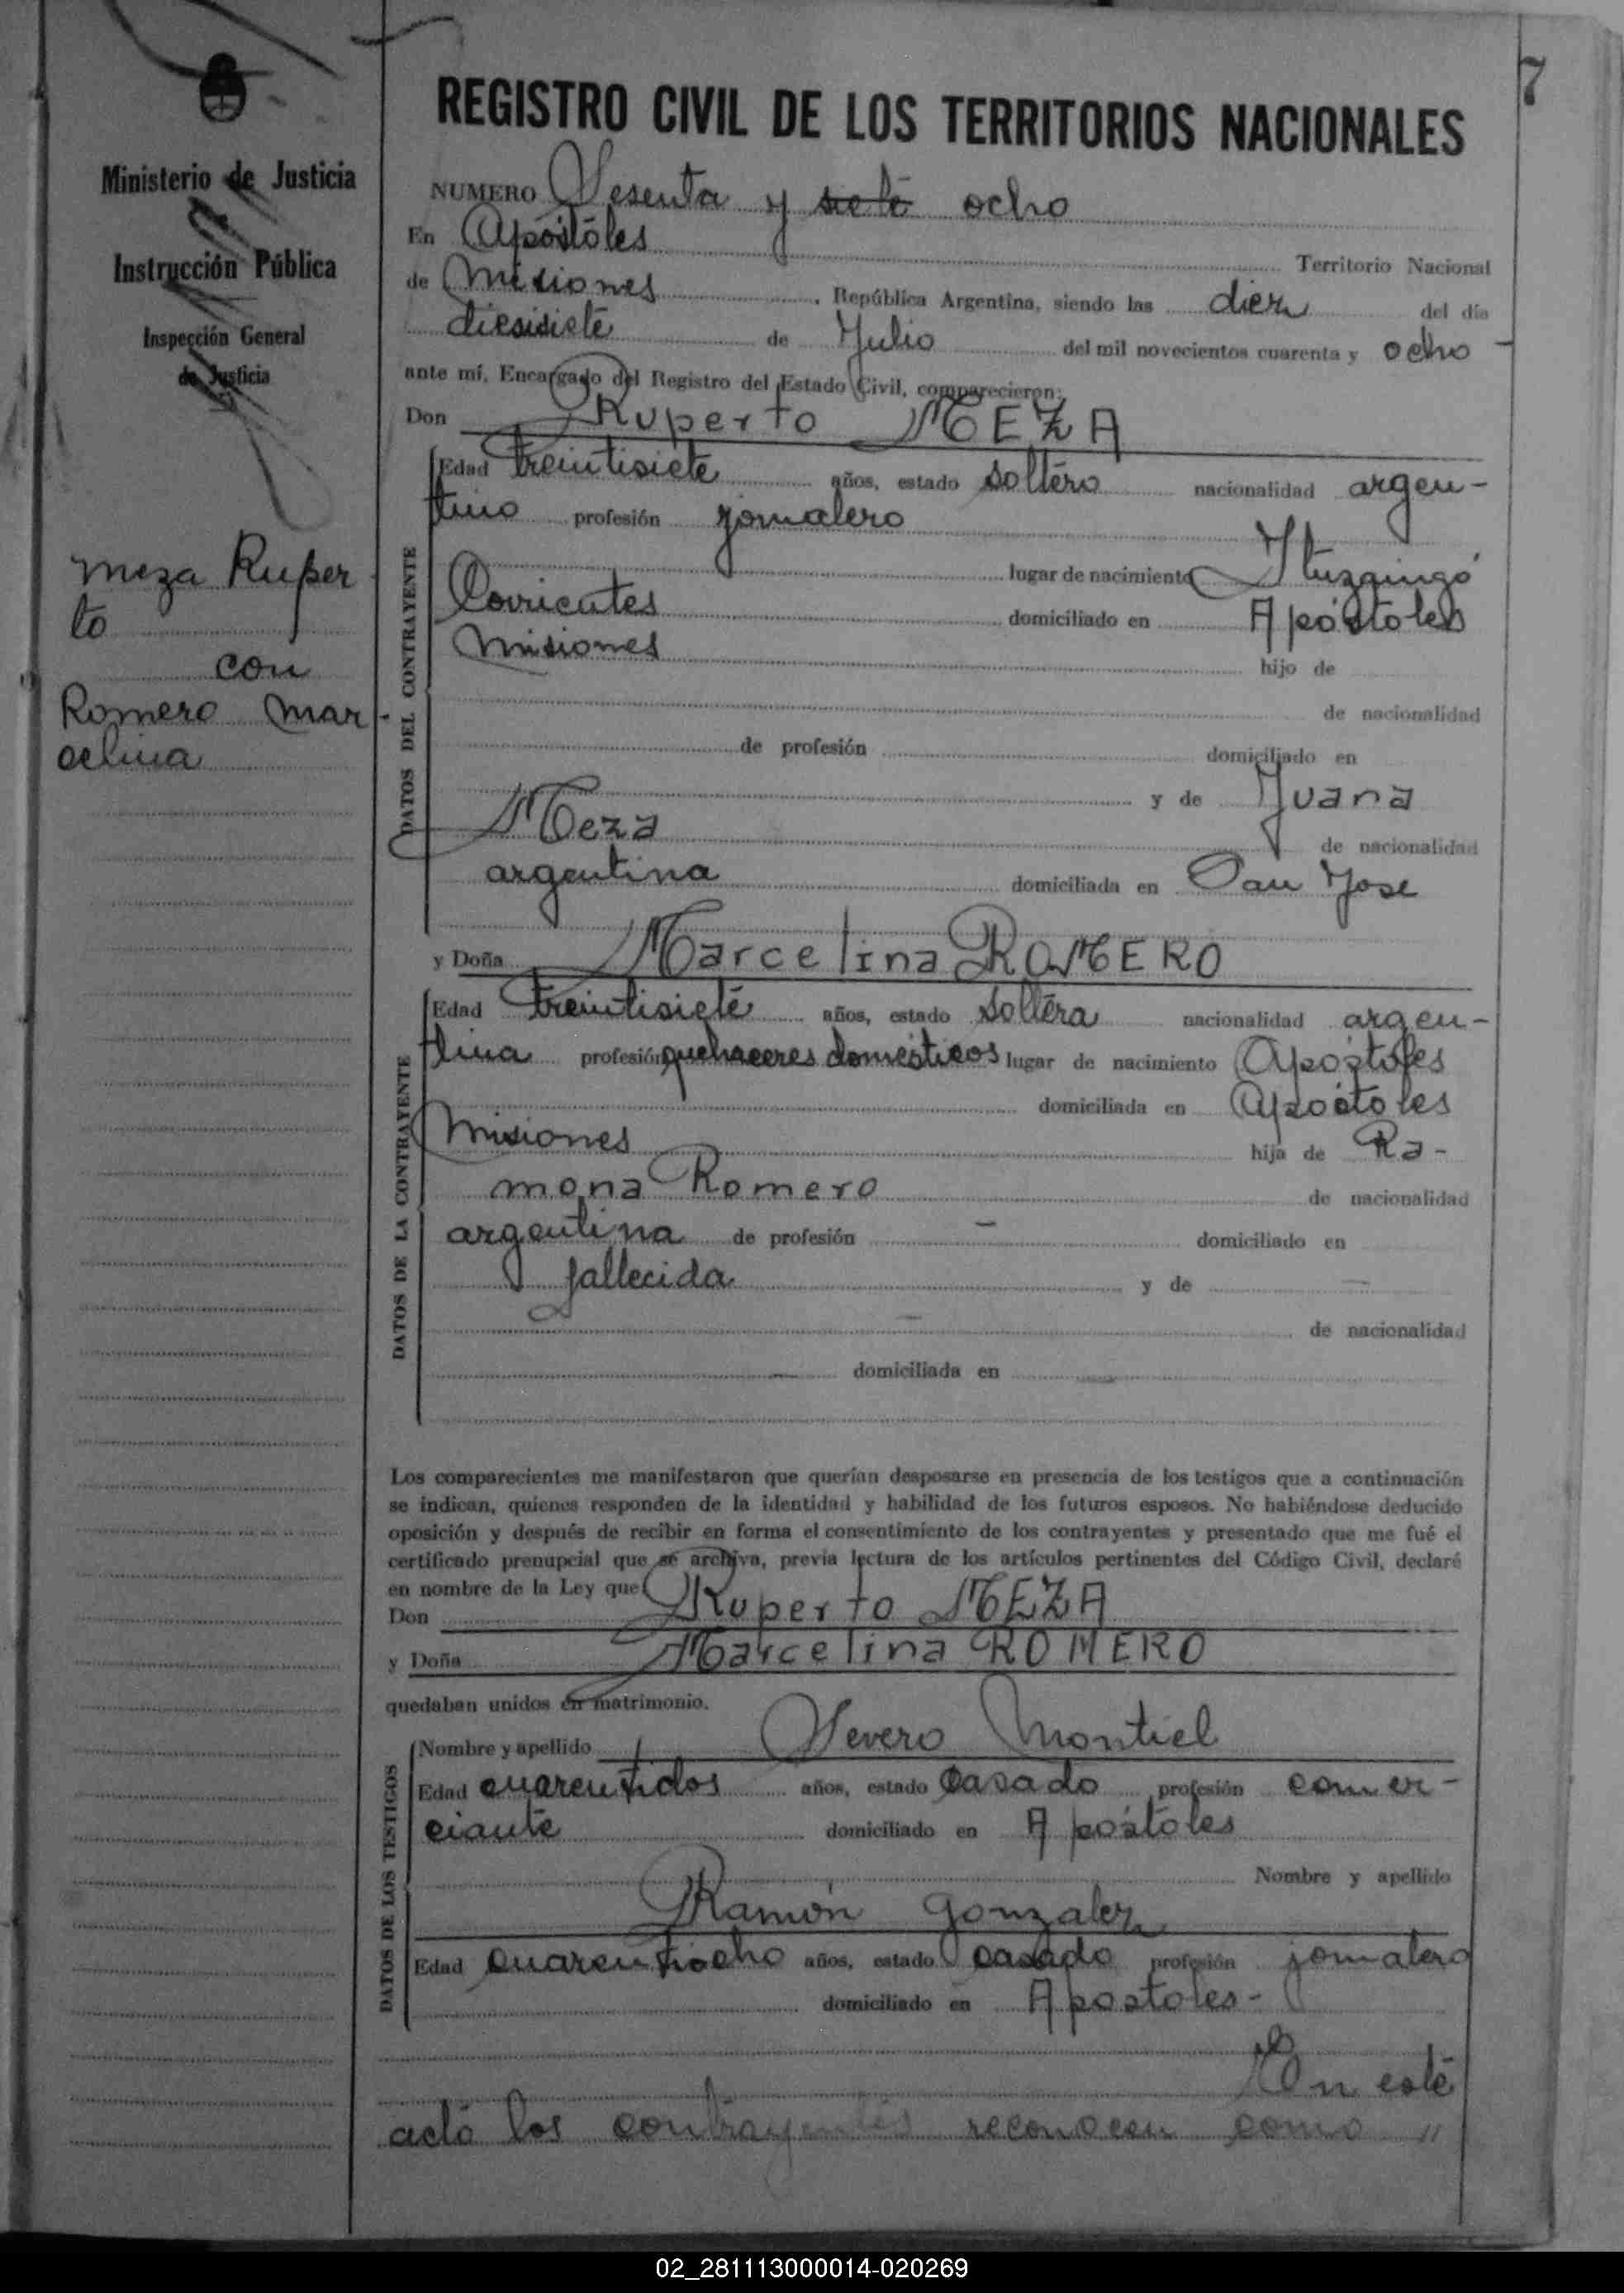 7
REGISTRO CIVIL DE LOS TERRITORIOS NACIONALES
Ministerio de Justicia
e
Instrucción Pública
Inspección General
de Justicia
Meza Ruper
to
con
Romero Mar
celina
NUMERO Sesenta y siete ocho
En Apóstoles Territorio Nacional
de Misiones, República Argentina, siendo las diez del día
diesisiete de Julio del mil novecientos cuarenta y ocho -
ante mí, Encargado del Registro del Estado Civil, comparecieron:
Don Ruperto MEZA
DATOS DEL CONTRAYENTE
Edad treintisiete años, estado soltero nacionalidad argen-
tino profesión jornalero
lugar de nacimiento Ituzaingó
Corrientes domiciliado en Apóstoles
Misiones hijo de
de nacionalidad
de profesión domiciliado en
y de Juana
Meza de nacionalidad
argentina domiciliada en San Jose
y Doña Marcelina ROMERO
DATOS DE LA CONTRAYENTE
Edad treintisiete años, estado soltera nacionalidad argen-
tina profesión quehaceres domésticos lugar de nacimiento Apóstoles
domiciliada en Apóstoles
Misiones hija de Ra-
mona Romero de nacionalidad
argentina de profesión — domiciliado en
fallecida y de —
— de nacionalidad
— domiciliada en —
Los comparecientes me manifestaron que querían desposarse en presencia de los testigos que a continuación
se indican, quienes responden de la identidad y habilidad de los futuros esposos. No habiéndose deducido
oposición y después de recibir en forma el consentimiento de los contrayentes y presentado que me fué el
certificado prenupcial que se archiva, previa lectura de los artículos pertinentes del Código Civil, declaré
en nombre de la Ley que
Don Ruperto MEZA
y Doña Marcelina ROMERO
quedaban unidos en matrimonio.
DATOS DE LOS TESTIGOS
Nombre y apellido Severo Montiel
Edad cuarentidos años, estado casado profesión comer-
ciante domiciliado en Apóstoles
Nombre y apellido
Ramón Gonzalez
Edad cuarentiocho años, estado casado profesión jornalero
domiciliado en Apostoles-
En este
acto los contrayentes reconocen como "
02_281113000014-020269